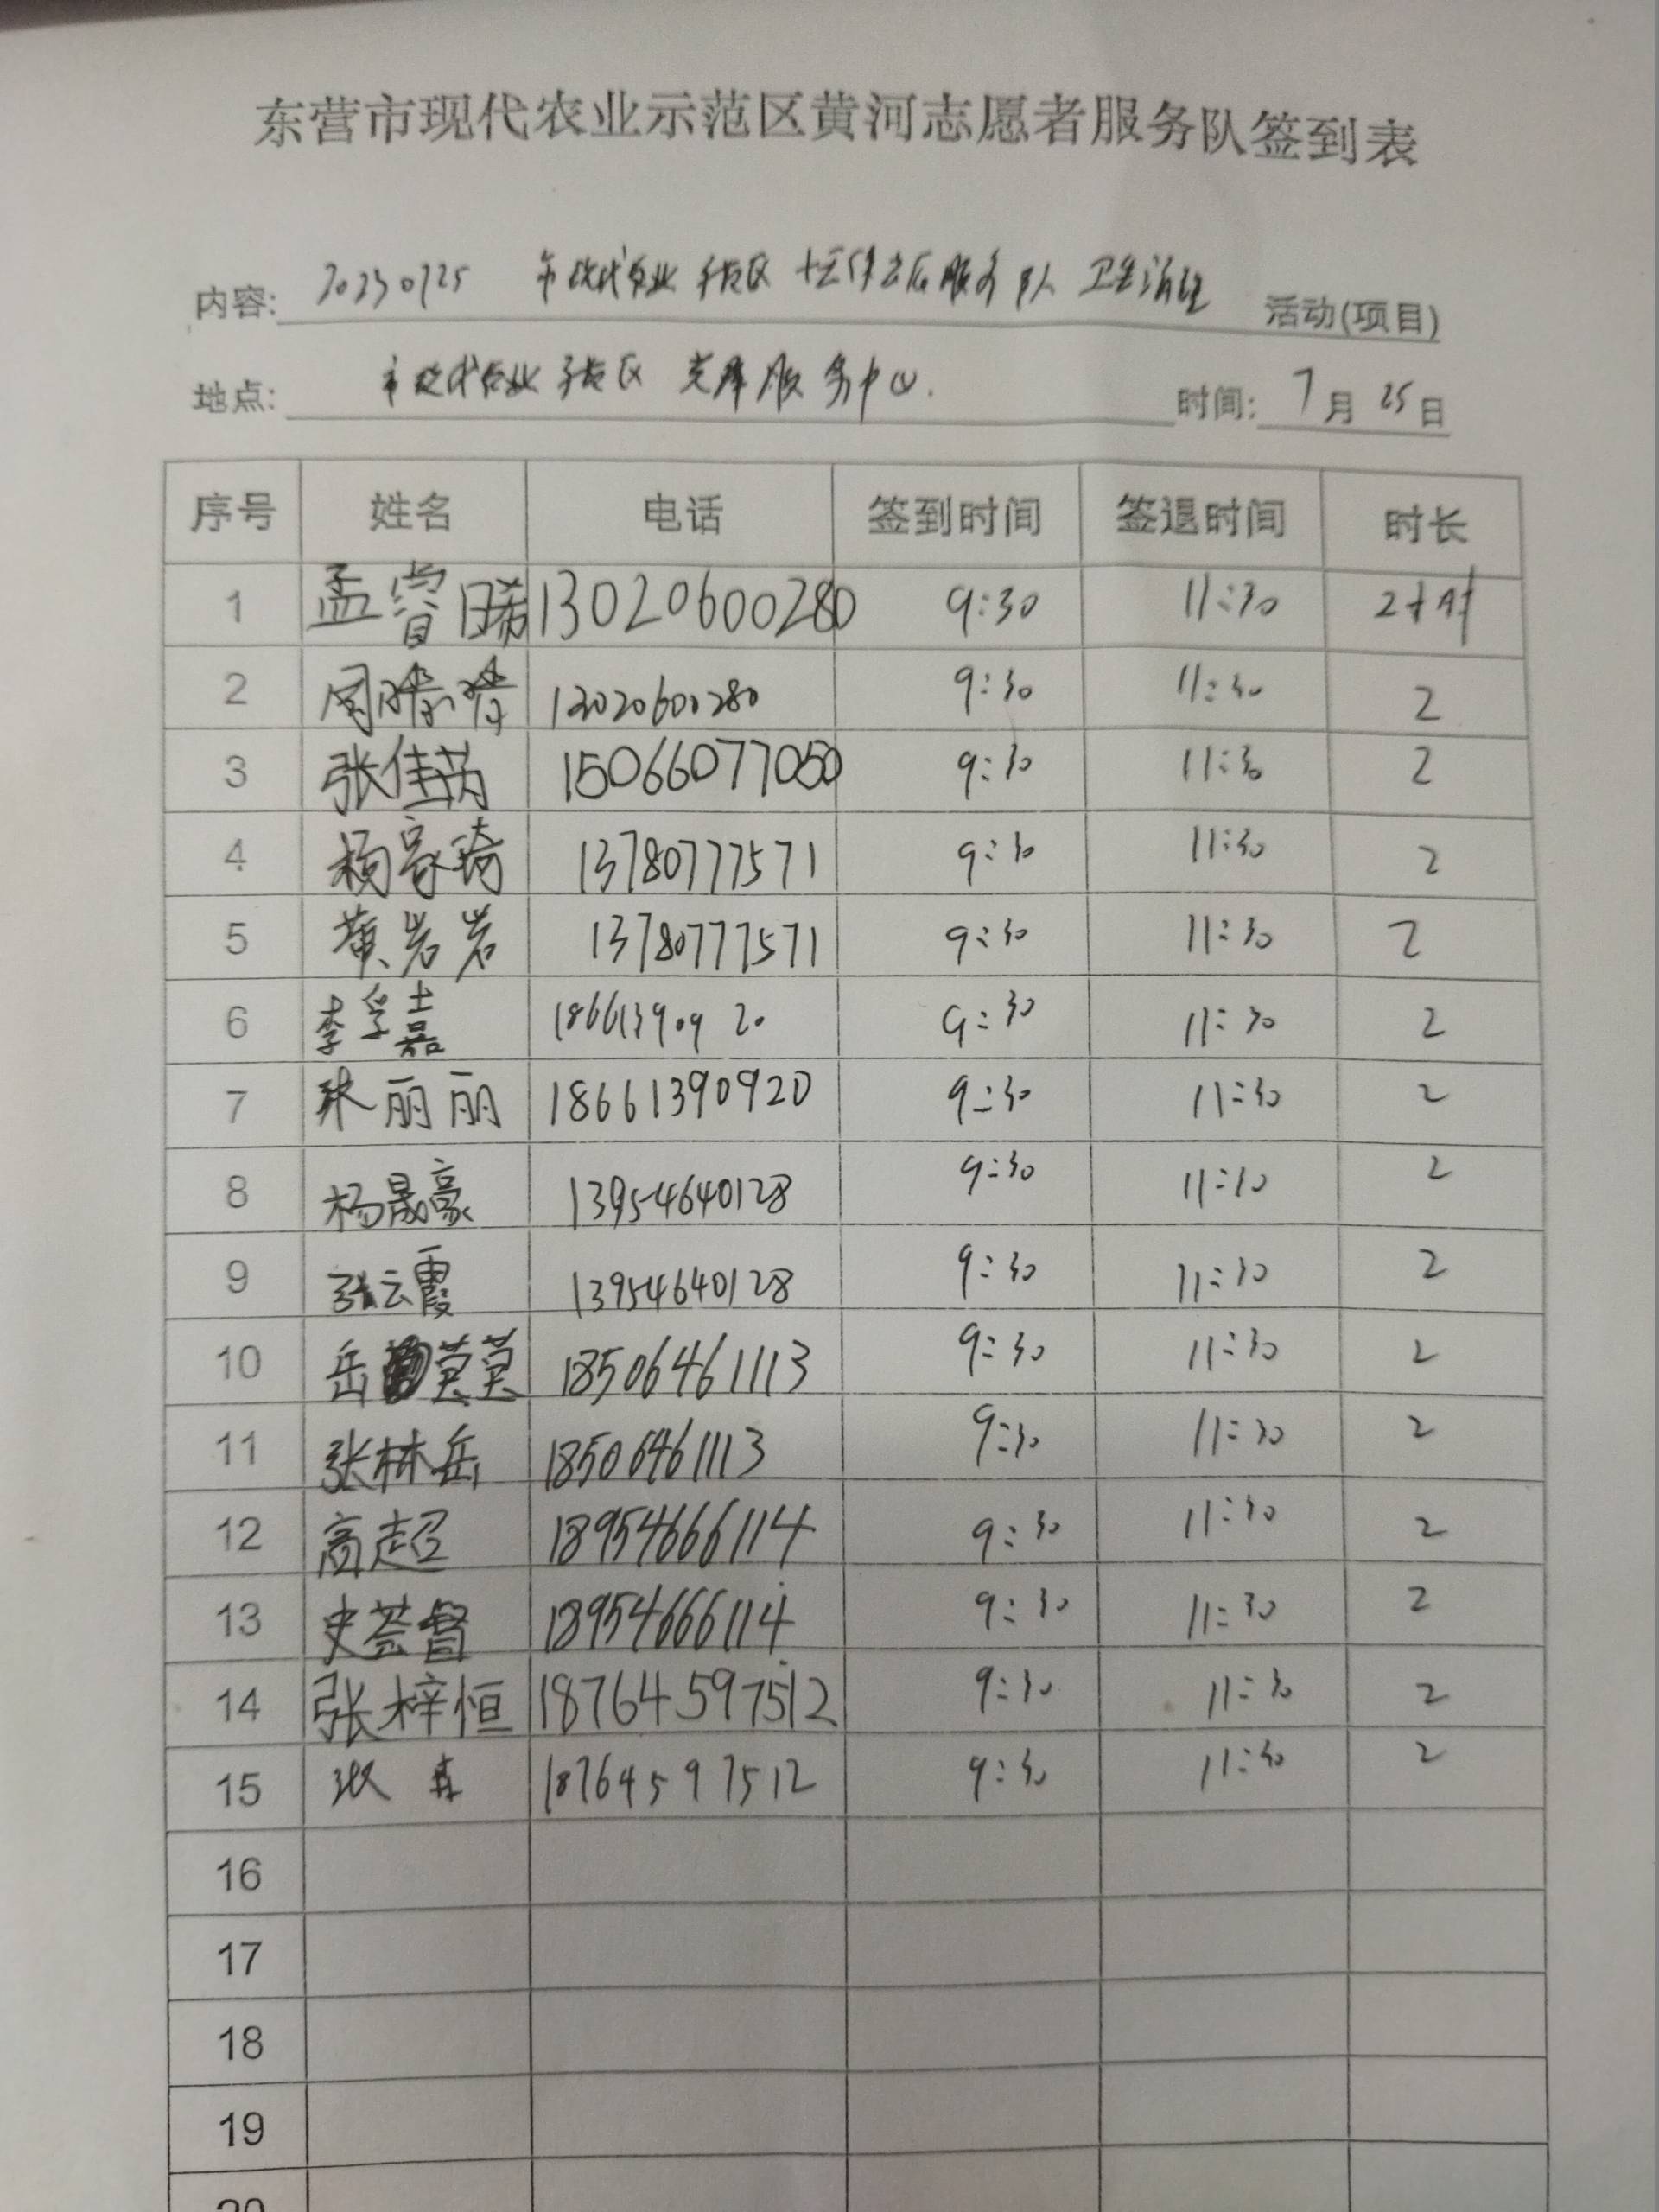 东营市现代农业示范区黄河志愿者服务队签到表
内容: 20230725 市现代农业示范区 服务队 卫生治理 活动(项目)
地点: 市现代农业示范区 党群服务中心. 时间: 7月25日
序号 姓名 电话 签到时间 签退时间 时长
1 孟 13020600280 9:30 11:30 2小时
2 周晴晴 13020600280 9:30 11:30 2
3 张佳芮 15066077050 9:30 11:30 2
4 杨家琦 13780777571 9:30 11:30 2
5 黄岩岩 13780777571 9:30 11:30 2
6 李孚嘉 18661390920 9:30 11:30 2
7 张丽丽 18661390920 9:30 11:30 2
8 杨晟豪 13954640128 9:30 11:30 2
9 张云霞 13954640128 9:30 11:30 2
10 岳莫莫 18506461113 9:30 11:30 2
11 张林岳 18506461113 9:30 11:30 2
12 高超 18954666114 9:30 11:30 2
13 史荟督 18954666114 9:30 11:30 2
14 张梓恒 18764597512 9:30 11:30 2
15 18764597512 9:30 11:30 2
16
17
18
19
20